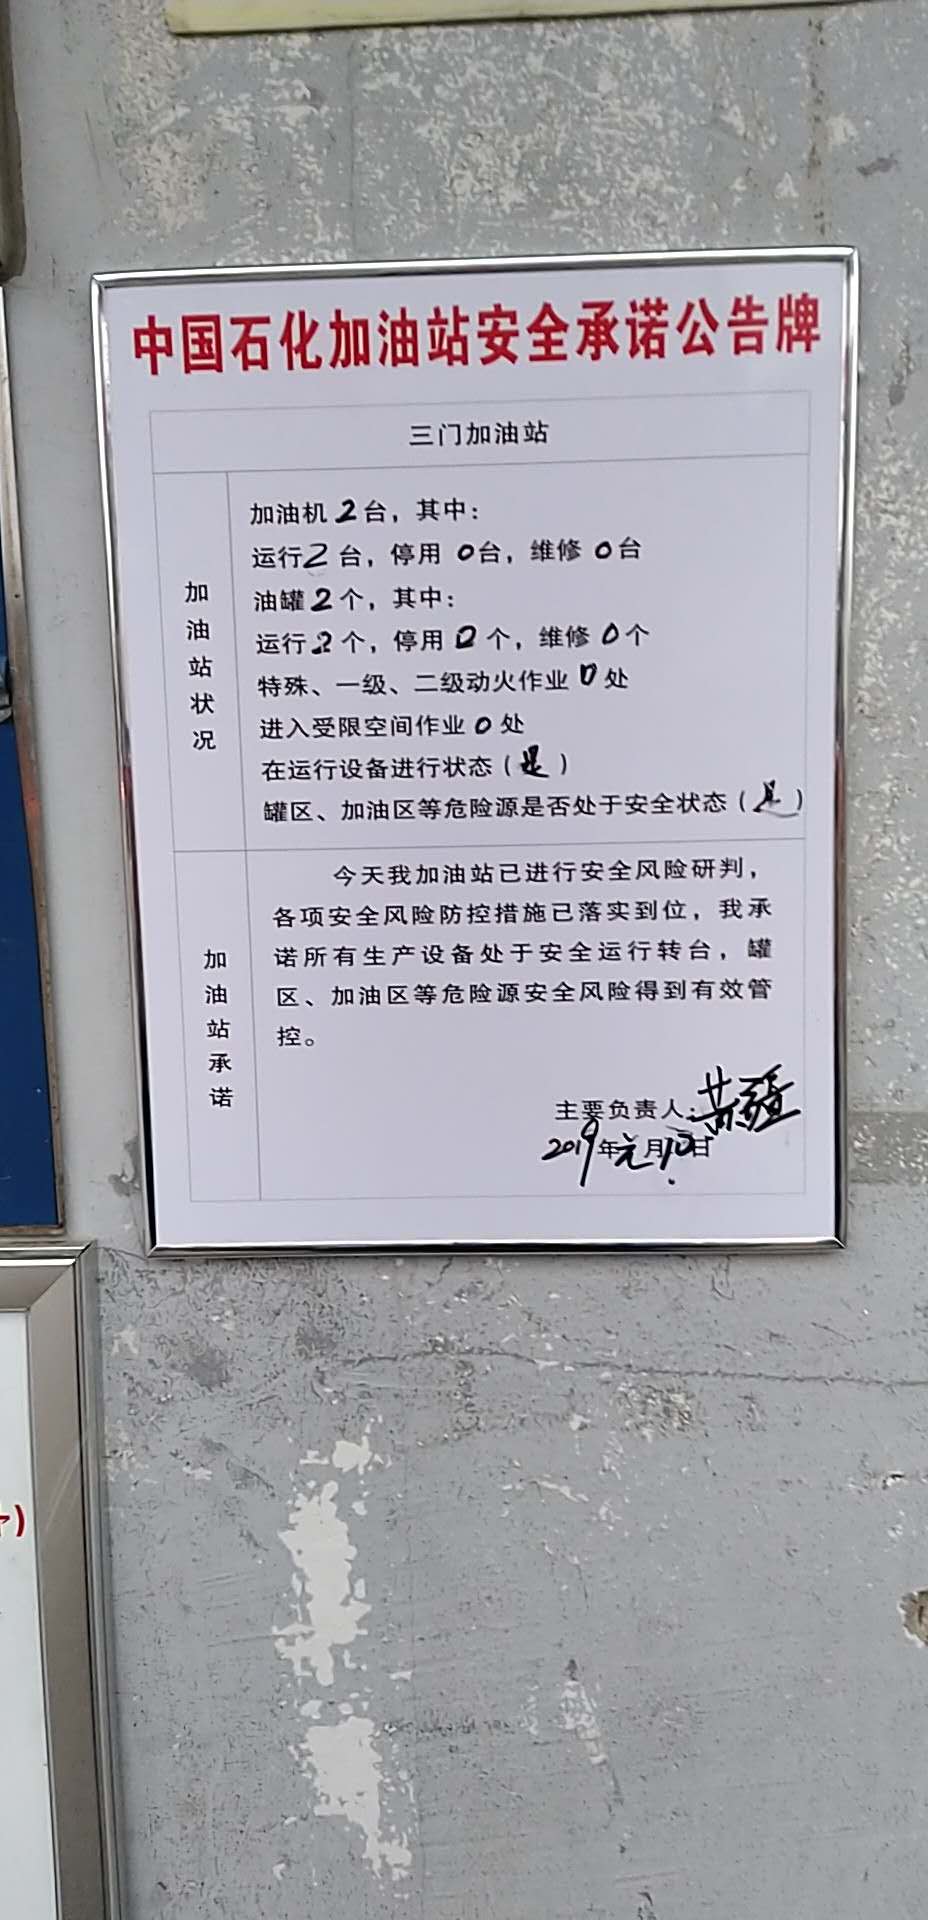 中国石化加油站安全承诺公告牌
三门加油站
加油站状况
加油机2台，其中：
运行2台，停用0台，维修0台
油罐2个，其中：
运行2个，停用0个，维修0个
特殊、一级、二级动火作业0处
进入受限空间作业0处
在运行设备进行状态（是）
罐区、加油区等危险源是否处于安全状态（是）
加油站承诺
今天我加油站已进行安全风险研判，
各项安全风险防控措施已落实到位，我承
诺所有生产设备处于安全运行转台，罐
区、加油区等危险源安全风险得到有效管
控。
主要负责人：黄
2019年元月10日